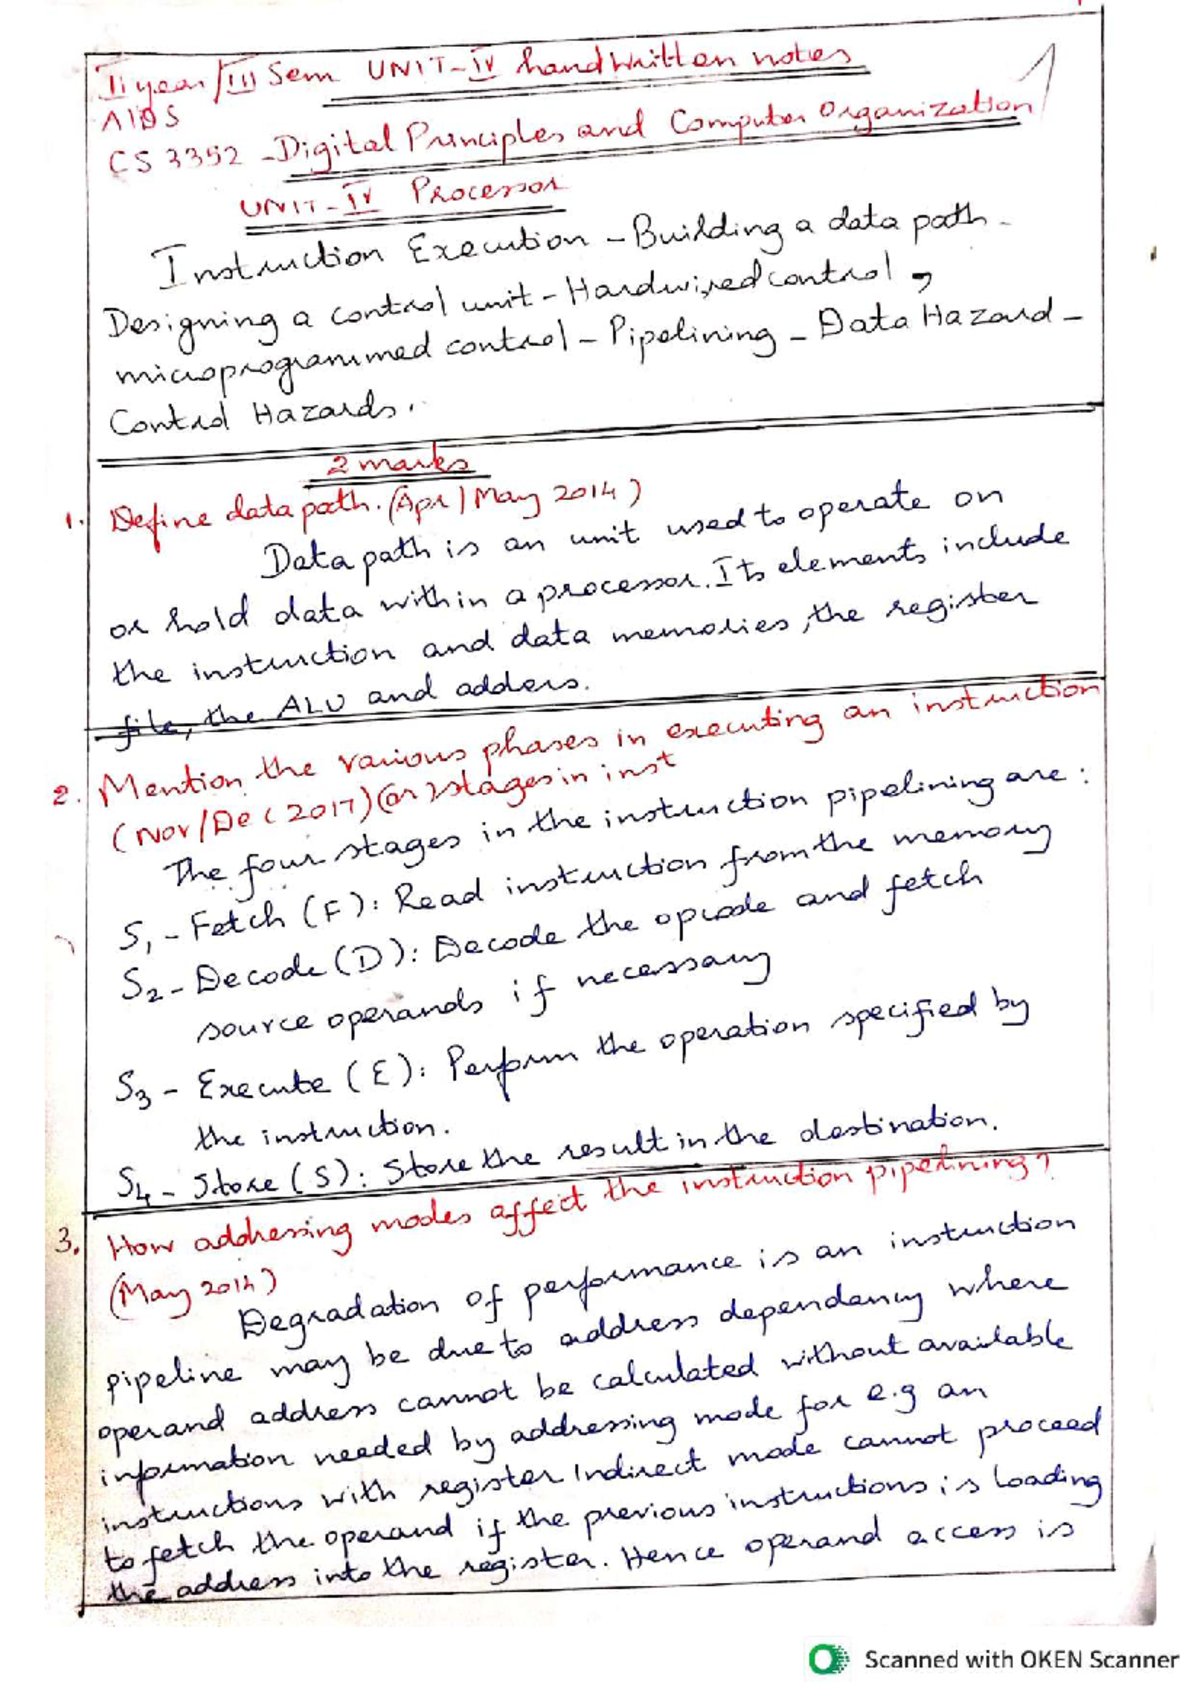 II year/III Sem UNIT-IV handwritten notes
AIDS
1
CS 3352 - Digital Principles and Computer Organization
UNIT-IV Processor
Instruction Execution - Building a data path -
Designing a control unit - Hardwired control,
microprogrammed control - Pipelining - Data Hazard -
Control Hazards.
2 marks
1. Define data path. (Apr/May 2014)
Data path is an unit used to operate on
or hold data within a processor. Its elements include
the instruction and data memories, the register
file, the ALU and adders.
2. Mention the various phases in executing an instruction
(Nov/Dec 2017) (or) stages in inst
The four stages in the instruction pipelining are:
S1 - Fetch (F): Read instruction from the memory
S2 - Decode (D): Decode the opcode and fetch
source operands if necessary
S3 - Execute (E): Perform the operation specified by
the instruction.
S4 - Store (S): Store the result in the destination.
3. How addressing modes affect the instruction pipelining?
(May 2014)
Degradation of performance is an instruction
pipeline may be due to address dependency where
operand address cannot be calculated without available
information needed by addressing mode for e.g an
instructions with register Indirect mode cannot proceed
to fetch the operand if the previous instructions is loading
the address into the register. Hence operand access is
Scanned with OKEN Scanner